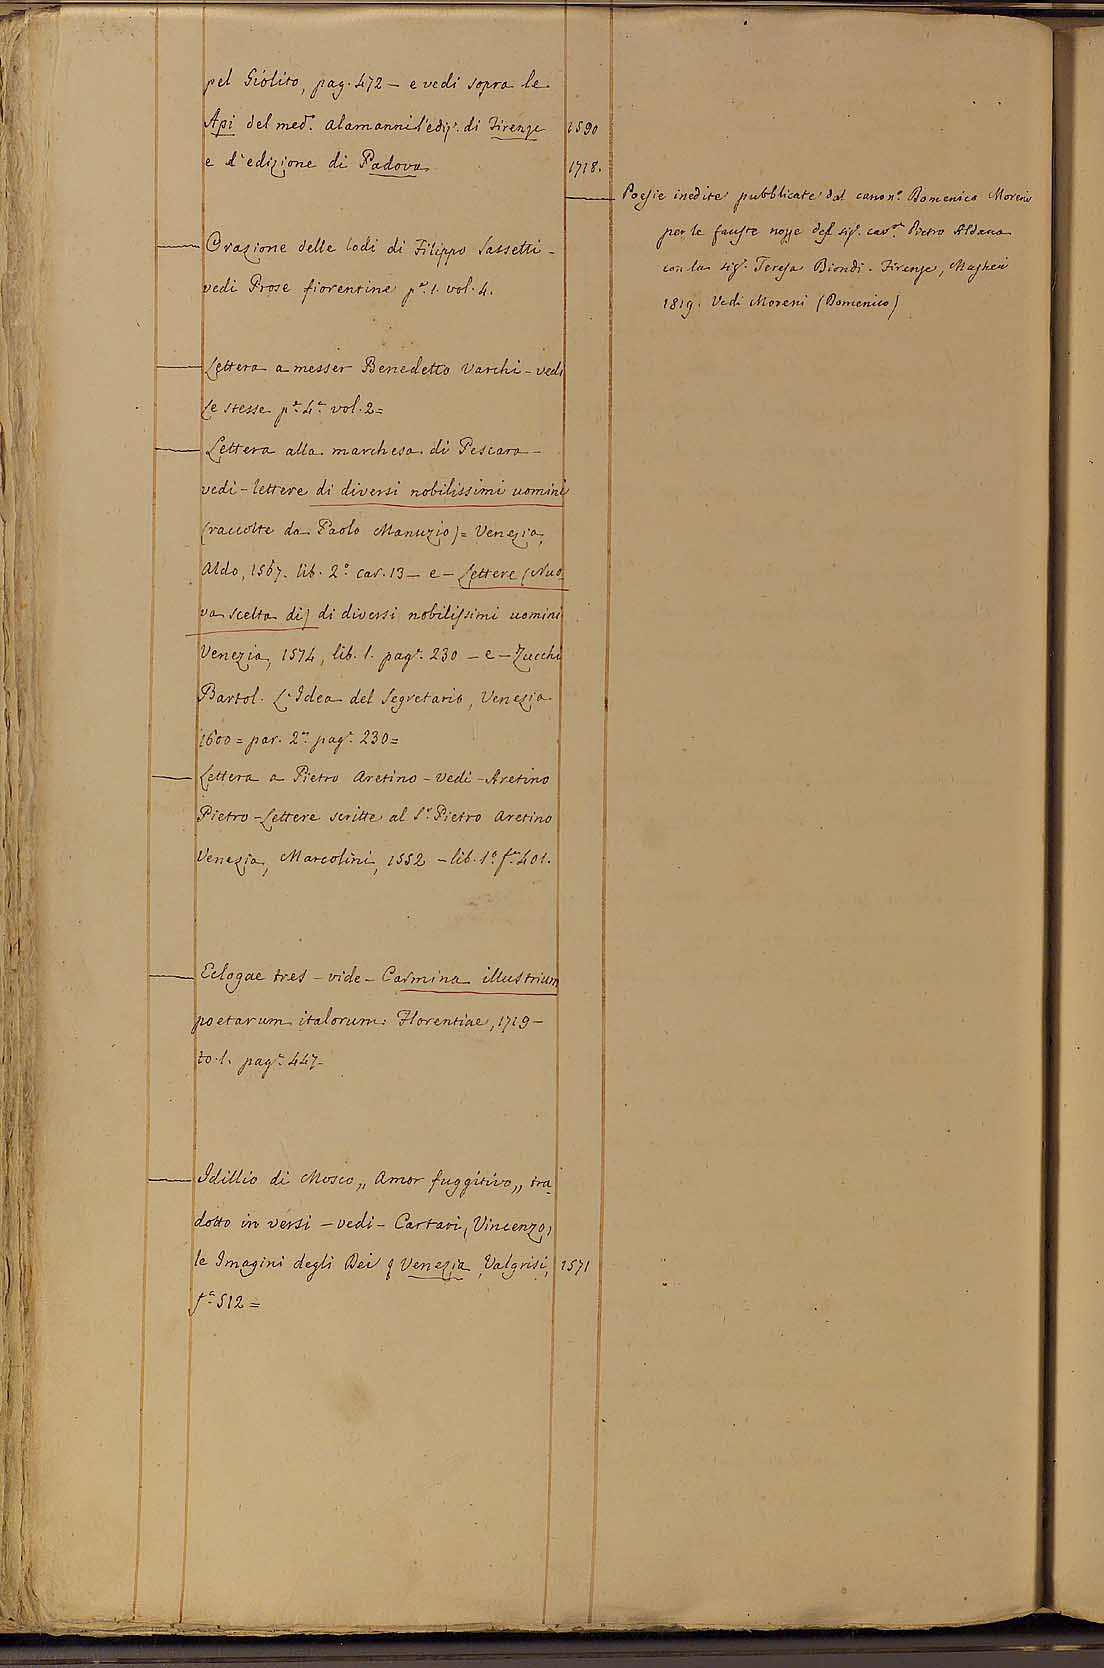 pel Giolito, pag. 472 — e vedi sopra le
Api del med.º Alamanni l'ediz.e di Firenze 1590
e l'edizione di Padova 1718.
— Orazione delle lodi di Filippo Sassetti -
vedi Prose fiorentine p.e 1. vol. 4.
— Lettera a messer Benedetto Varchi - vedi
le stesse p.e 4.a vol. 2 =
— Lettera alla marchesa di Pescara -
vedi - lettere di diversi nobilissimi uomini
(raccolte da Paolo Manuzio) = Venezia,
Aldo, 1567. lib. 2.º car. 13 — e — Lettere (Nuo
va scelta di) di diversi nobilissimi uomini
Venezia, 1574, lib. 1. pag.a 230 — e — Zucchi
Bartol. L'Idea del Segretario, Venezia
1600 = par. 2.a pag.a 230 =
— Lettera a Pietro Aretino - vedi - Aretino
Pietro - Lettere scritte al S.r Pietro Aretino
Venezia, Marcolini, 1552 - lib. 1.º f.º 401.
— Eclogae tres - vide - Carmina illustrium
poetarum italorum: Florentiae, 1719 -
to. 1. pag.a 447 -
— Idillio di Mosco „ Amor fuggitivo „ tra_
dotto in versi - vedi - Cartari, Vincenzo,
le Imagini degli Dei Venezia, Valgrisi, 1571
f.º 512 =
— Poesie inedite pubblicate dal canon.º Domenico Moreni
per le fauste nozze del sig.r cav.r Pietro Aldana
con la sig.a Teresa Biondi. Firenze, Magheri
1819. Vedi Moreni (Domenico)